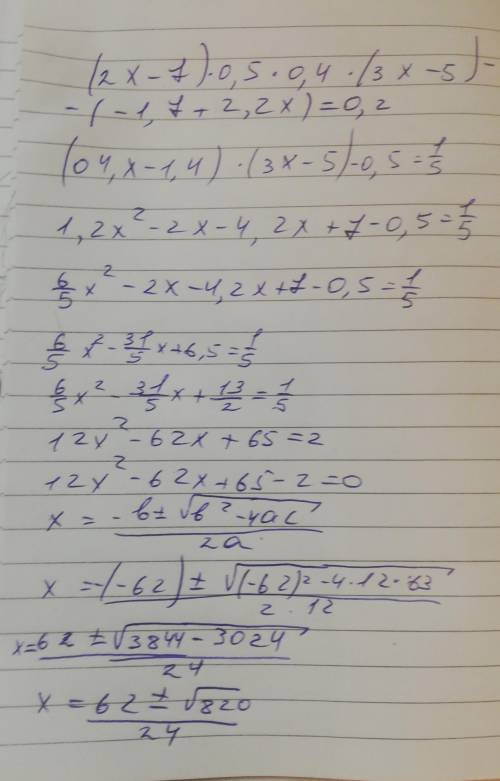 (2x-7)·0,5·0,4·(3x-5)-
-(-1,7+2,2x)=0,2
(04,x-1,4)·(3x-5)-0,5=1/5
1,2x²-2x-4,2x+7-0,5=1/5
6/5x²-2x-4,2x+7-0,5=1/5
6/5x²-31/5x+6,5=1/5
6/5x²-31/5x+13/2=1/5
12x²-62x+65=2
12x²-62x+65-2=0
x=-b±√b²-4ac/2a
x=-(-62)±√(-62)²-4·12·63/2·12
x=62±√3844-3024/24
x=62±√820/24